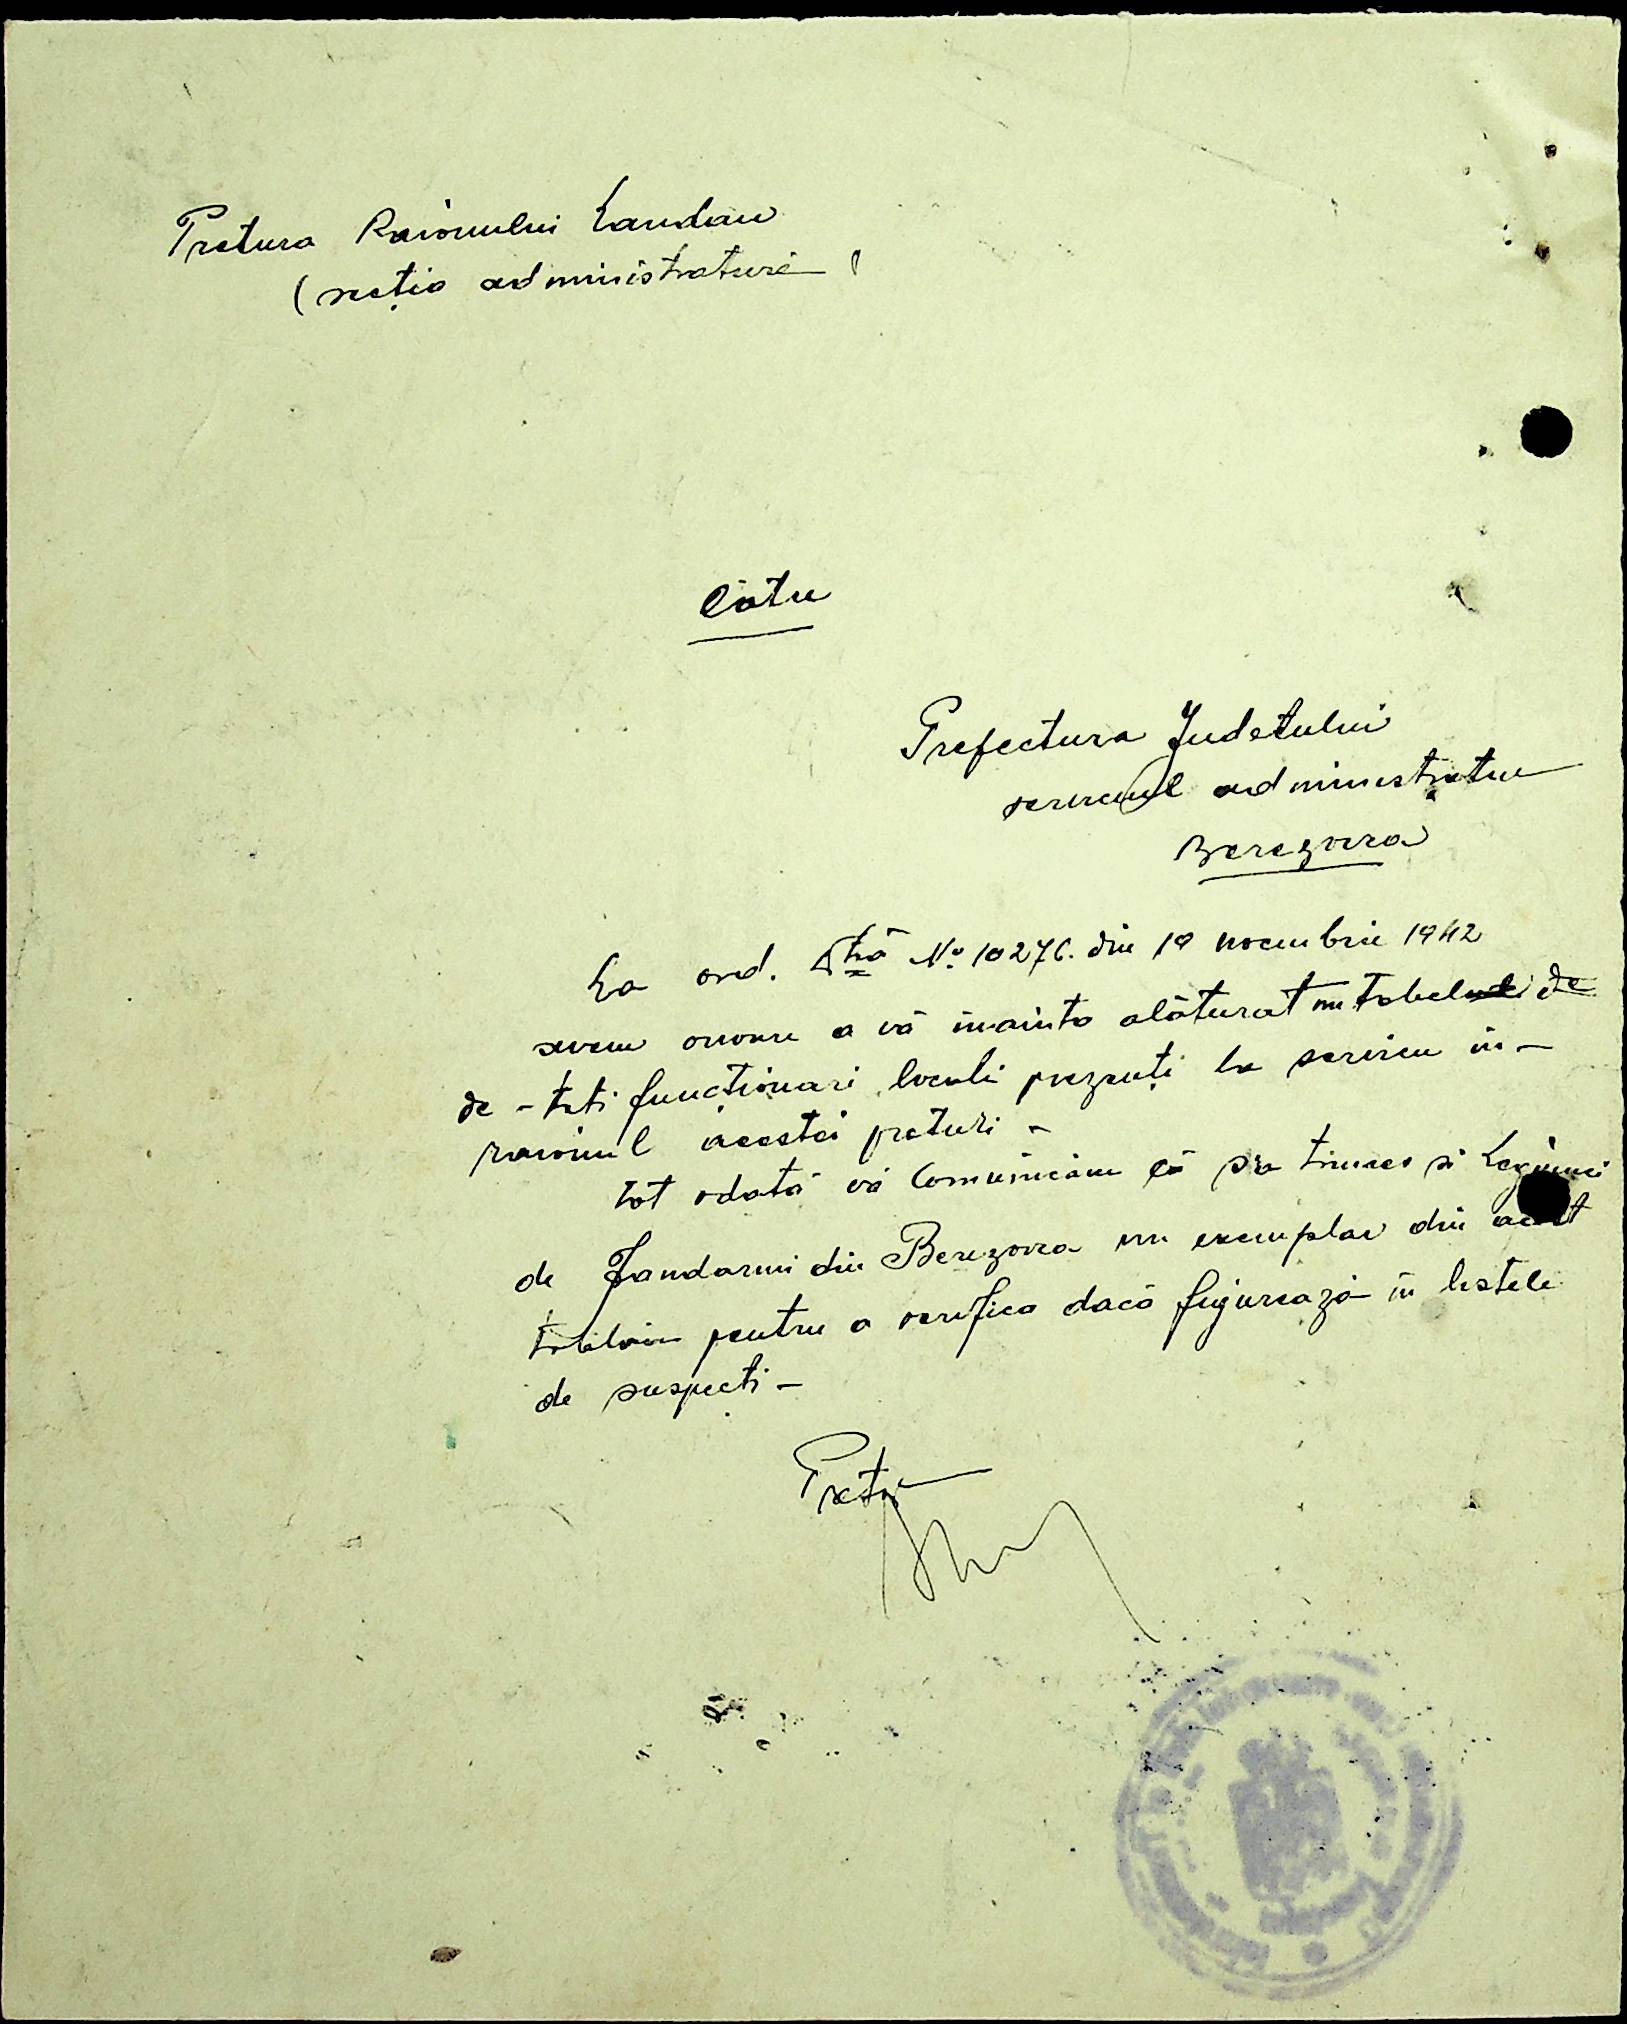 Pretura Raionului Landau
(secția administrativă)
Către
Prefectura Judetului
serviciul administrativ
Berezovca
La ord. Dvtră No. 10276. din 19 noembrie 1942
avem onoare a vă inainta alăturat un tabel de
de - toti funcționari locali prezenți la serviciu in -
raionul acestei preturi -
tot odată vă comunicăm că s'a trimes si Legiunei
de Jandarmi din Berezovca un exemplar din acest
pentru a verifica dacă figurează in listele
de suspecti -
Pretor